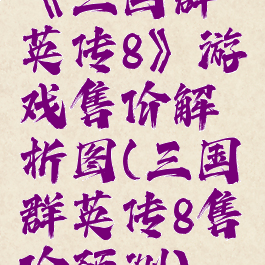 《三国群
英传8》游
戏售价解
析图(三国
群英传8售
价预测)